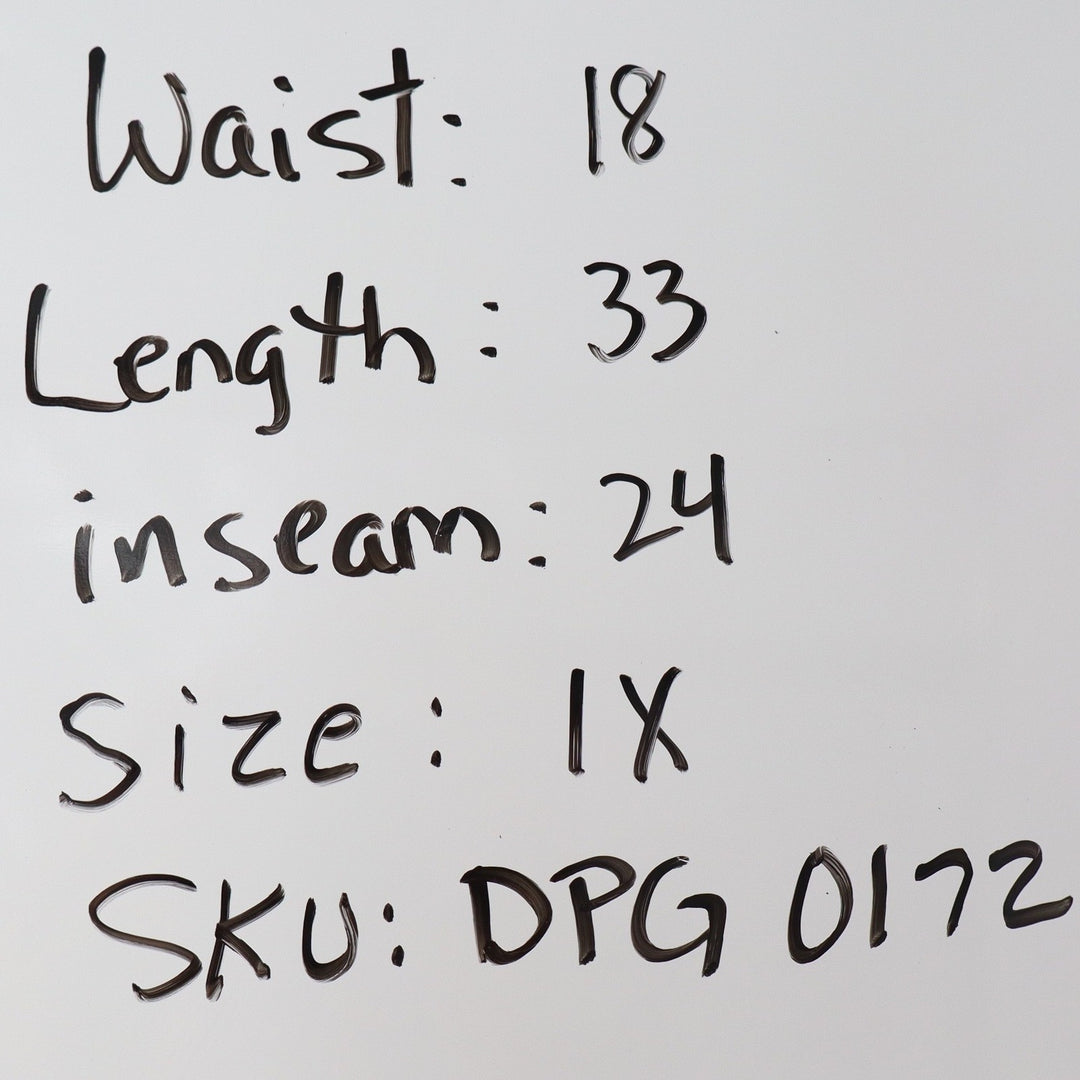 Waist: 18
Length: 33
inseam: 24
Size: 1X
SKU: DPG 0172